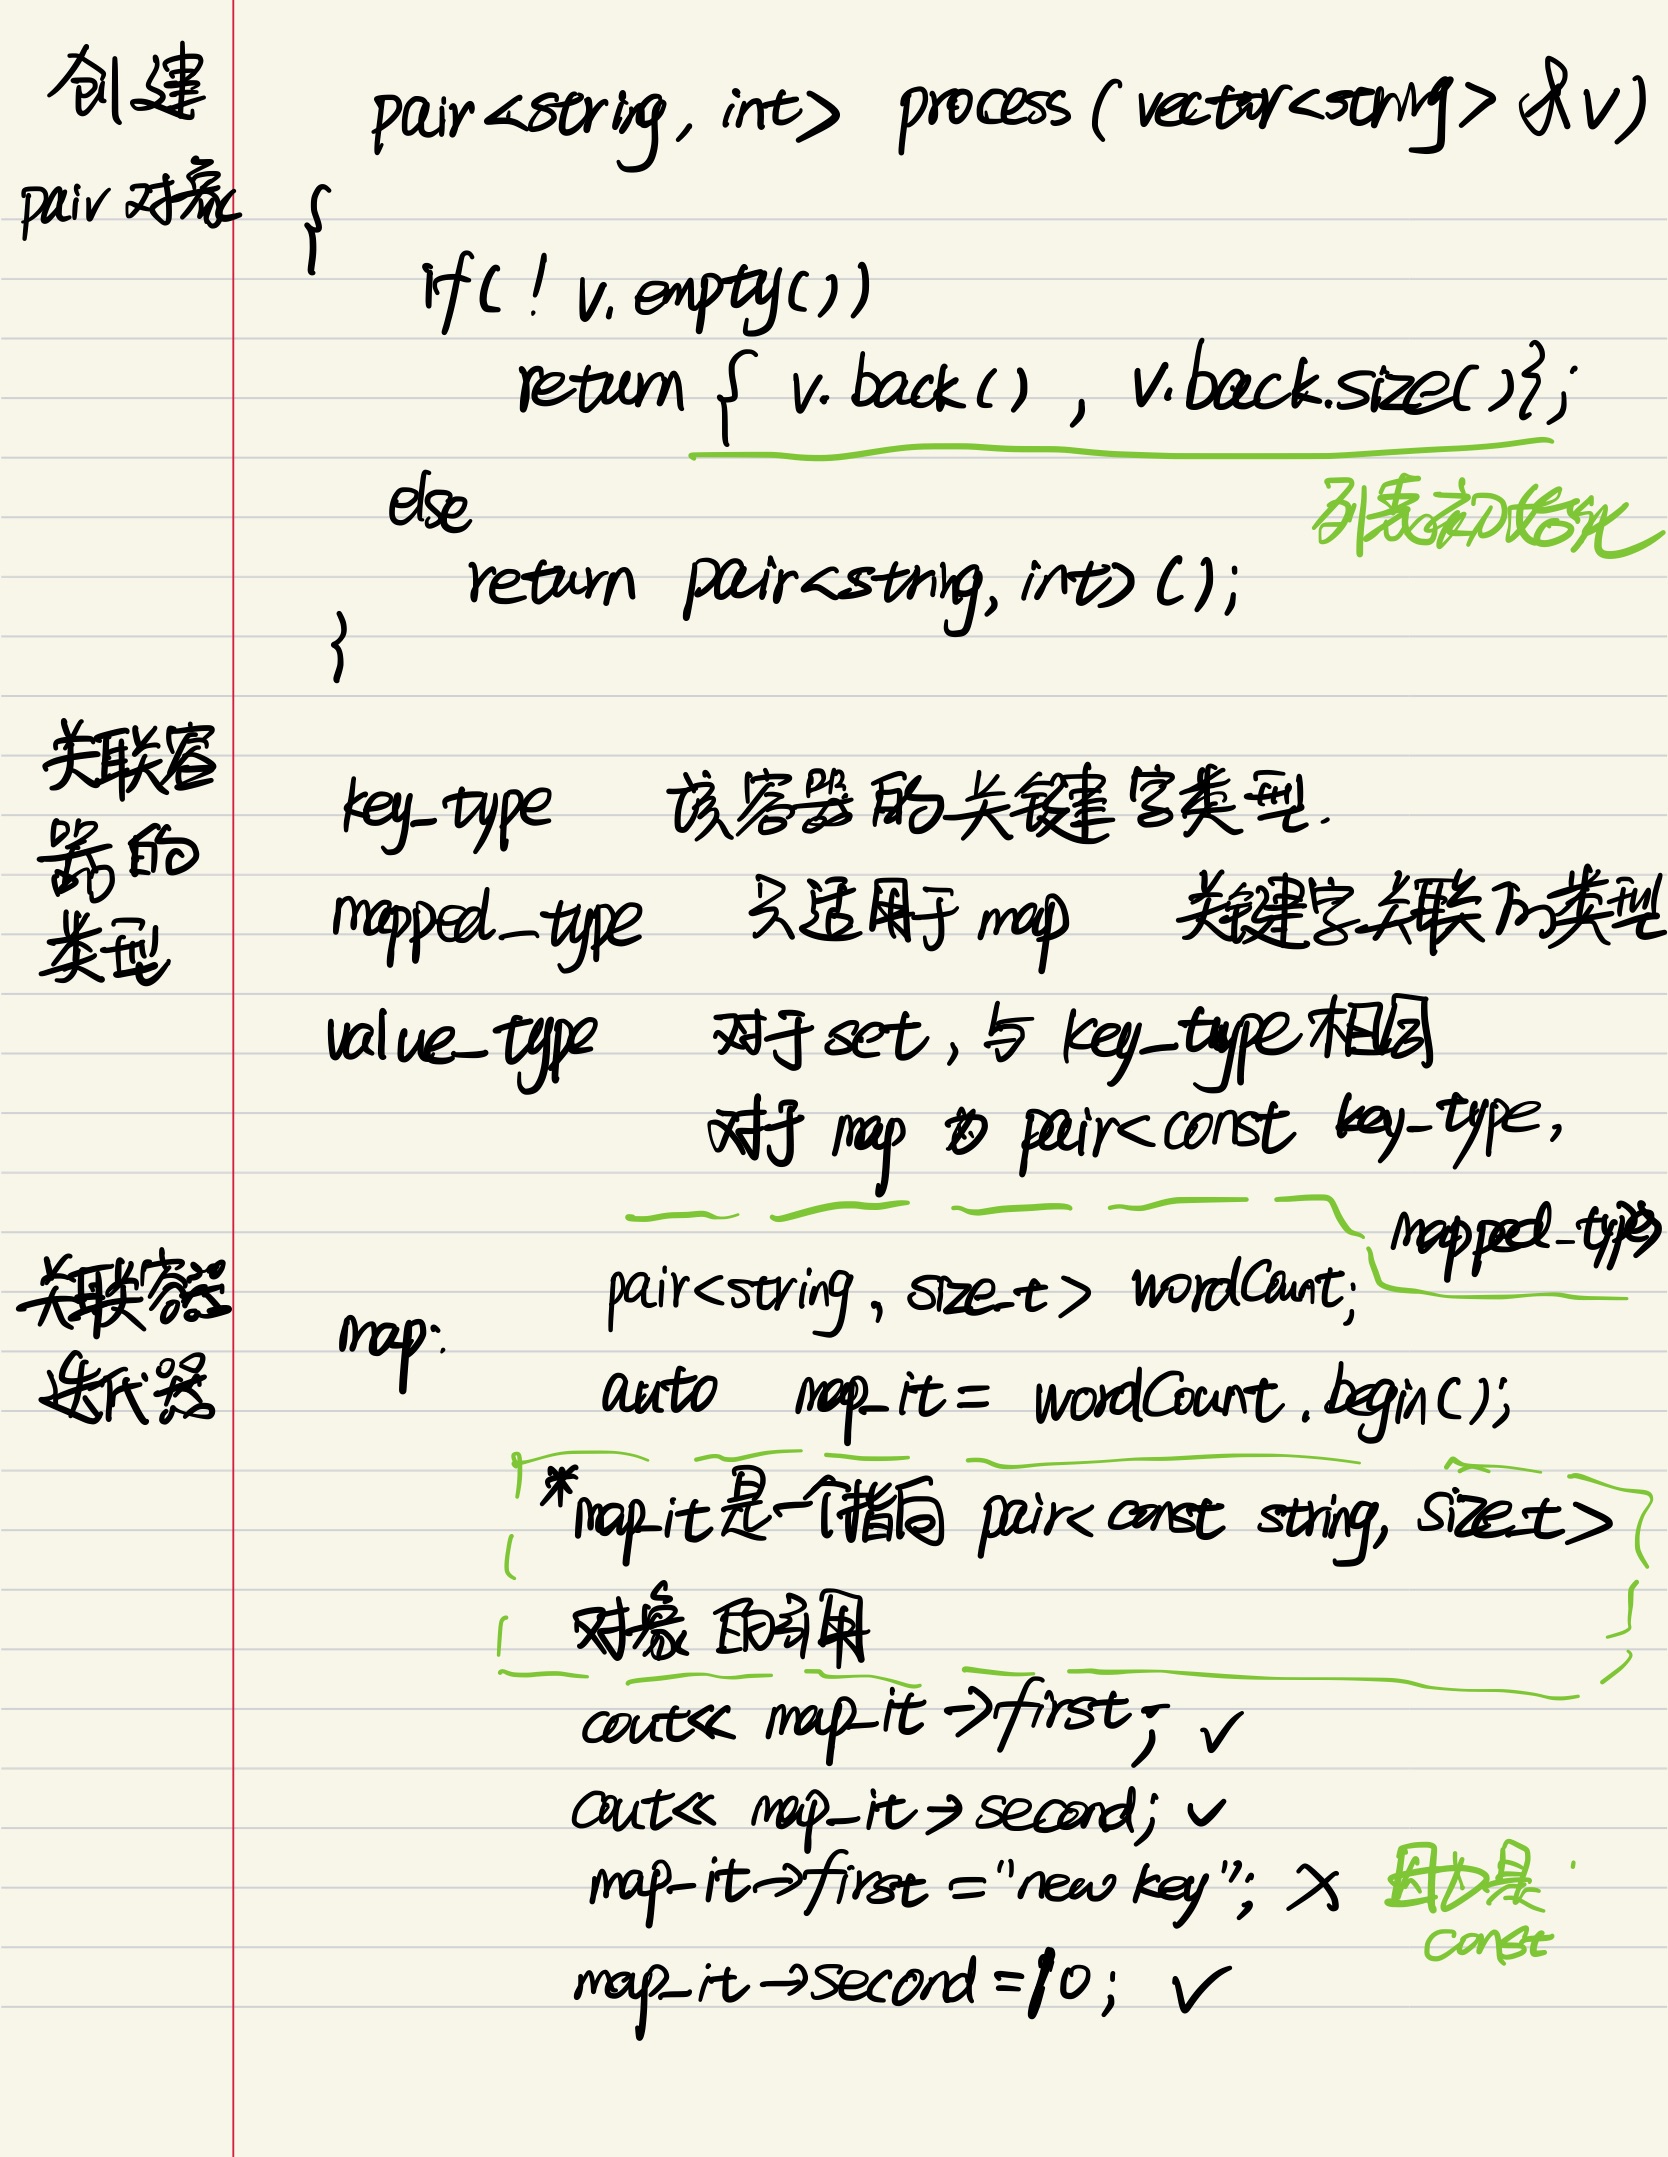 创建
pair 对象
pair<string, int> process(vector<string> &v)
{
if(! v.empty())
return { v.back() , v.back.size()};
列表初始化
else
return pair<string, int>();
}
关联容
器的
类型
key_type 该容器的关键字类型.
mapped_type 只适用于 map 关键字关联的类型
value_type 对于 set, 与 key_type 相同
对于 map 为 pair<const key_type,
mapped_type>
关联容器
迭代器
map:
pair<string, size_t> wordCount;
auto map_it = wordCount.begin();
*map_it 是一个指向 pair<const string, size_t>
对象的引用
cout<< map_it ->first; ✓
cout<< map_it ->second; ✓
map_it->first ="new key"; × 因为是
const
map_it ->second =10; ✓